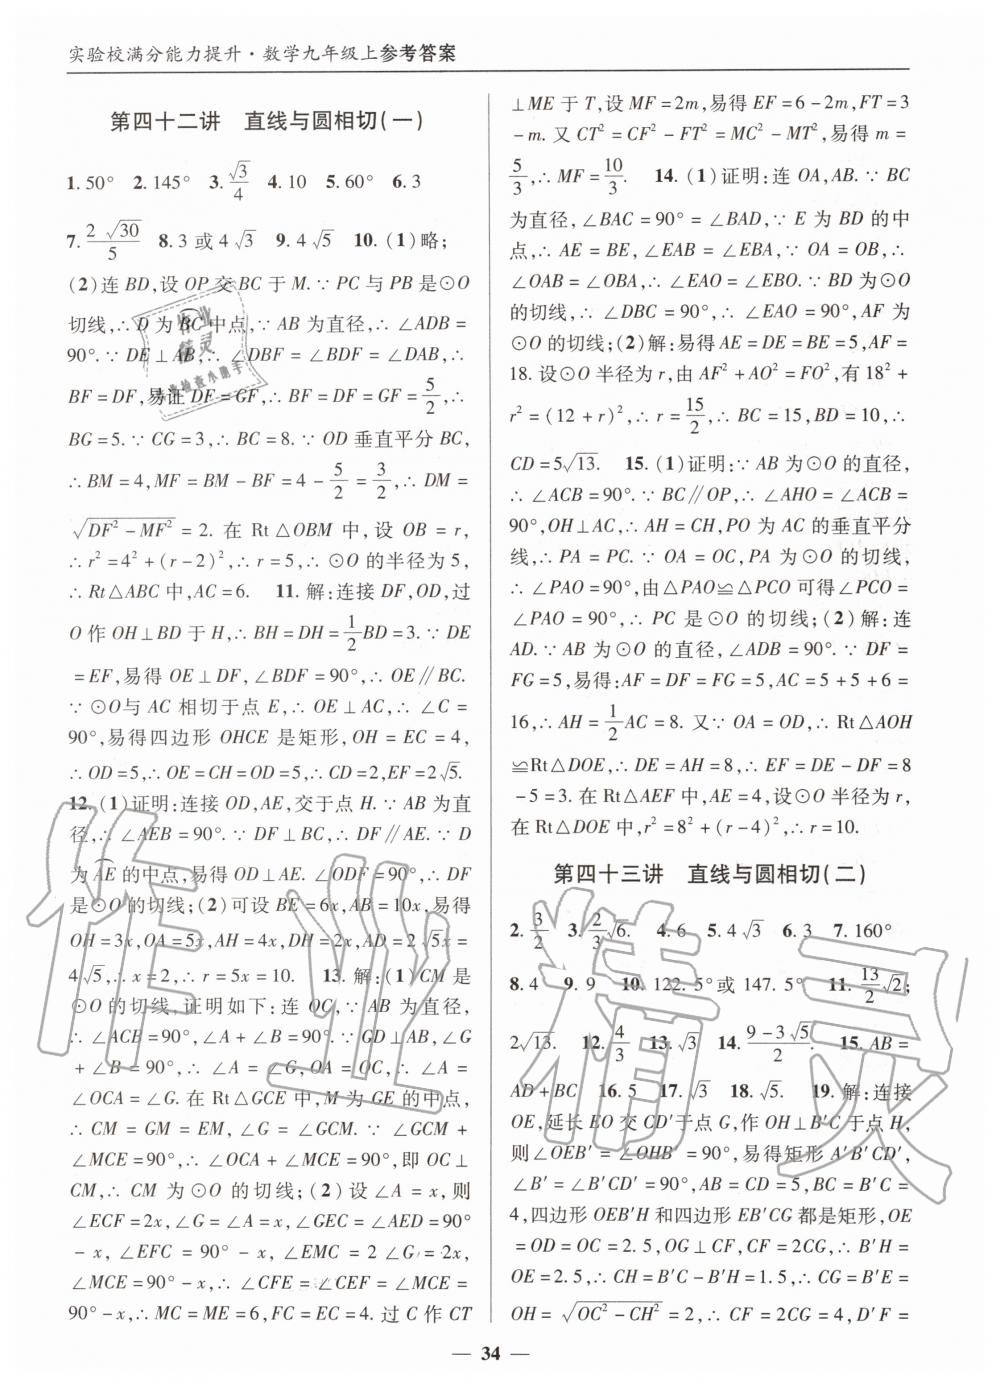 实验校满分能力提升·数学九年级上参考答案
第四十二讲 直线与圆相切(一)
1.50° 2.145° 3.√3/4 4.10 5.60° 6.3
7.2√30/5 8.3或4√3 9.4√5 10.(1)略;
(2)连BD,设OP交BC于M.∵PC与PB是⊙O
切线,∴D为BC中点,∵AB为直径,∴∠ADB=
90°.∵DE⊥AB,∴∠DBF=∠BDF=∠DAB,∴
BF=DF,易证DF=GF,∴BF=DF=GF=5/2,∴
BG=5.∵CG=3,∴BC=8.∵OD垂直平分BC,
∴BM=4,MF=BM-BF=4-5/2=3/2,∴DM=
√(DF²-MF²)=2.在Rt△OBM中,设OB=r,
∴r²=4²+(r-2)²,∴r=5,∴⊙O的半径为5,
∴Rt△ABC中,AC=6. 11.解:连接DF,OD,过
O作OH⊥BD于H,∴BH=DH=1/2BD=3.∵DE
=EF,易得OE⊥DF,∠BDF=90°,∴OE∥BC.
∵⊙O与AC相切于点E,∴OE⊥AC,∴∠C=
90°,易得四边形OHCE是矩形,OH=EC=4,
∴OD=5,∴OE=CH=OD=5,∴CD=2,EF=2√5.
12.(1)证明:连接OD,AE,交于点H.∵AB为直
径,∴∠AEB=90°.∵DF⊥BC,∴DF∥AE.∵D
为AE的中点,易得OD⊥AE.∠ODF=90°,∴DF
是⊙O的切线;(2)可设BE=6x,AB=10x,易得
OH=3x,OA=5x,AH=4x,DH=2x,AD=2√5x=
4√5,∴x=2,∴r=5x=10. 13.解:(1)CM是
⊙O的切线,证明如下:连OC,∵AB为直径,
∴∠ACB=90°,∠A+∠B=90°.∵GD⊥AB,∠G
+∠B=90°,∴∠A=∠G,OA=OC,∴∠A=
∠OCA=∠G.在Rt△GCE中,M为GE的中点,
∴CM=GM=EM,∠G=∠GCM.∵∠GCM+
∠MCE=90°,∴∠OCA+∠MCE=90°,即OC⊥
CM,∴CM为⊙O的切线;(2)设∠A=x,则
∠ECF=2x,∠G=∠A=x,∠GEC=∠AED=90°
-x,∠EFC=90°-x,∠EMC=2∠G=2x,
∠MCE=90°-x,∴∠CFE=∠CEF=∠MCE=
90°-x,∴MC=ME=6,FC=EC=4.过C作CT
⊥ME于T,设MF=2m,易得EF=6-2m,FT=3
-m.又CT²=CF²-FT²=MC²-MT²,易得m=
5/3,∴MF=10/3. 14.(1)证明:连OA,AB.∵BC
为直径,∠BAC=90°=∠BAD,∵E为BD的中
点,∴AE=BE,∠EAB=∠EBA,∵OA=OB,∴
∠OAB=∠OBA,∴∠EAO=∠EBO.∵BD为⊙O
的切线,∴∠DBC=90°,∴∠EAO=90°,AF为
⊙O的切线;(2)解:易得AE=DE=BE=5,AF=
18.设⊙O半径为r,由AF²+AO²=FO²,有18²+
r²=(12+r)²,∴r=15/2,∴BC=15,BD=10,∴
CD=5√13. 15.(1)证明:∵AB为⊙O的直径,
∴∠ACB=90°.∵BC∥OP,∴∠AHO=∠ACB=
90°,OH⊥AC,∴AH=CH,PO为AC的垂直平分
线,∴PA=PC.∵OA=OC,PA为⊙O的切线,
∴∠PAO=90°,由△PAO≌△PCO可得∠PCO=
∠PAO=90°,∴PC是⊙O的切线;(2)解:连
AD.∵AB为⊙O的直径,∠ADB=90°.∵DF=
FG=5,易得:AF=DF=FG=5,AC=5+5+6=
16,∴AH=1/2AC=8.又∵OA=OD,∴Rt△AOH
≌Rt△DOE,∴DE=AH=8,∴EF=DE-DF=8
-5=3.在Rt△AEF中,AE=4,设⊙O半径为r,
在Rt△DOE中,r²=8²+(r-4)²,∴r=10.
第四十三讲 直线与圆相切(二)
2.3/2 3.2/3√6. 4.6 5.4√3 6.3 7.160°
8.4 9.9 10.122.5°或147.5° 11.13/2√2;
2√13. 12.4/3 13.√3 14.(9-3√5)/2. 15.AB=
AD+BC 16.5 17.√3 18.√5. 19.解:连接
OE,延长EO交CD′于点G,作OH⊥B′C于点H,
则∠OEB′=∠OHB′=90°,易得矩形A′B′CD′,
∠B′=∠B′CD′=90°,AB=CD=5,BC=B′C=
4,四边形OEB′H和四边形EB′CG都是矩形,OE
=OD=OC=2.5,OG⊥CF,CF=2CG,∴B′H=
OE=2.5,∴CH=B′C-B′H=1.5,∴CG=B′E=
OH=√(OC²-CH²)=2,∴CF=2CG=4,D′F=
— 34 —
作业精灵
作业
精灵
作业检查小助手